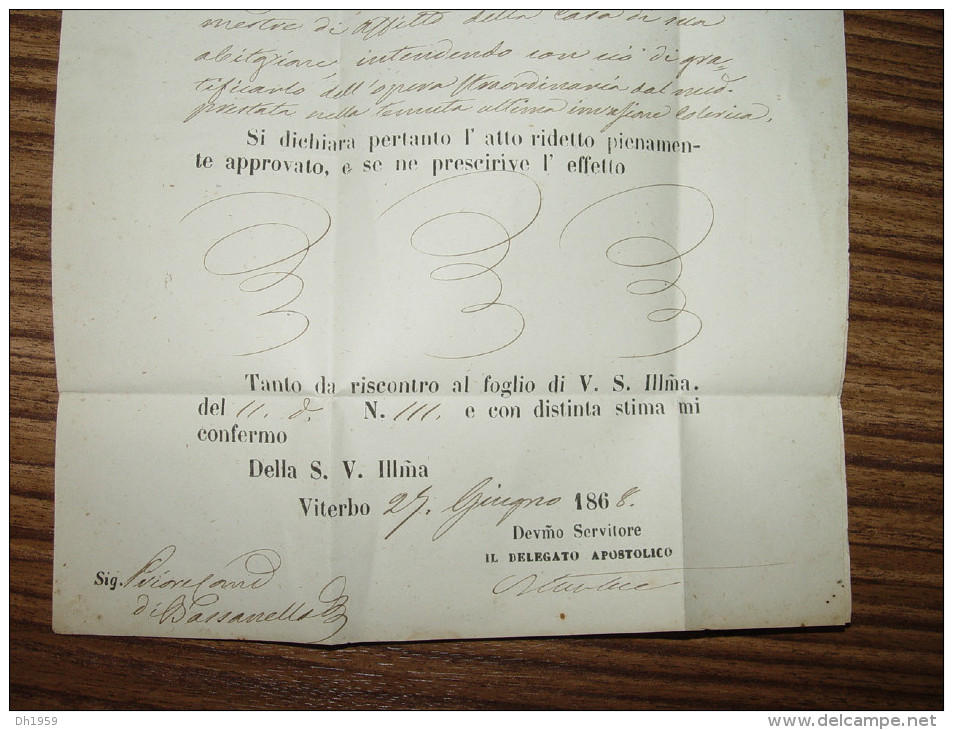 mestre di affitto della Casa di sua
abitazione intendendo con ciò di gra-
tificarlo dell'opera straordinaria dal med.º
prestata nella temuta ultima invasione Colerica.
Si dichiara pertanto l' atto ridetto pienamen-
te approvato, e se ne prescirive l' effetto
Tanto da riscontro al foglio di V. S. Illm̃a.
del 11. d.º N. 111. e con distinta stima mi
confermo
Della S. V. Illm̃a
Viterbo 27. Giugno 1868.
Devm̃o Servitore
IL DELEGATO APOSTOLICO
Sig. Priore Com
di Bassanello
Dh1959
www.delcampe.net